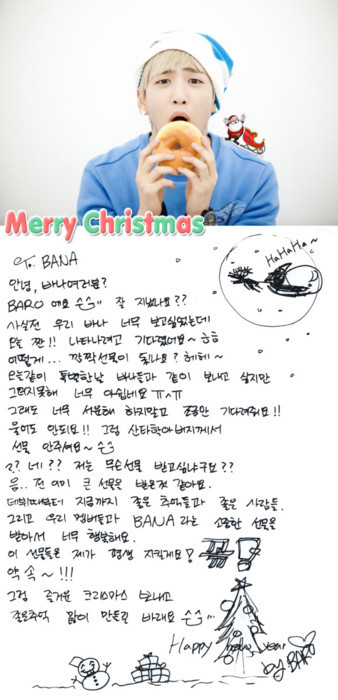 Merry Christmas
To. BANA
HaHaHa~
안녕, 바나여러분?
BARO 에요 순순" 잘 지냈나요??
사실전 우리 바나 너무 보고싶었는데
오늘 짠!! 나타나려고 기다렸어요~ ㅎㅎ
어떻게... 깜짝선물이 됐나요? 헤헤~
오늘같이 특별한날 바나들과 같이 보내고 싶지만
그러지못해 너무 아쉽네요 ㅠㅅㅠ
그래도 너무 서운해 하지말고 조금만 기다려줘요!!
울어도 안되요!! 그럼 산타할아버지께서
선물 안주셔요~
?? 네?? 저는 무슨선물 받고싶냐구요??
음.. 전 이미 큰 선물을 받은것 같아요.
데뷔때부터 지금까지 좋은 추억들과 좋은 사람들.
그리고 우리 멤버들과 BANA 라는 소중한 선물을
받아서 너무 행복해요.
이 선물들은 제가 평생 지킬게요!
약속~!!!
그럼 즐거운 크리스마스 보내고
좋은추억 많이 만들길 바래요
Happy new year
by BARO